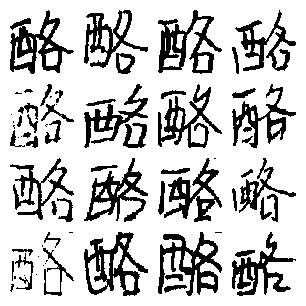 酪酪酪酪
酪酪酪酪
酪酪酪酪
酪酪酪酪